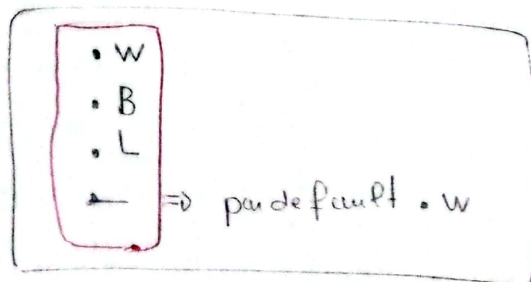 . W
. B
. L
— => par default . W